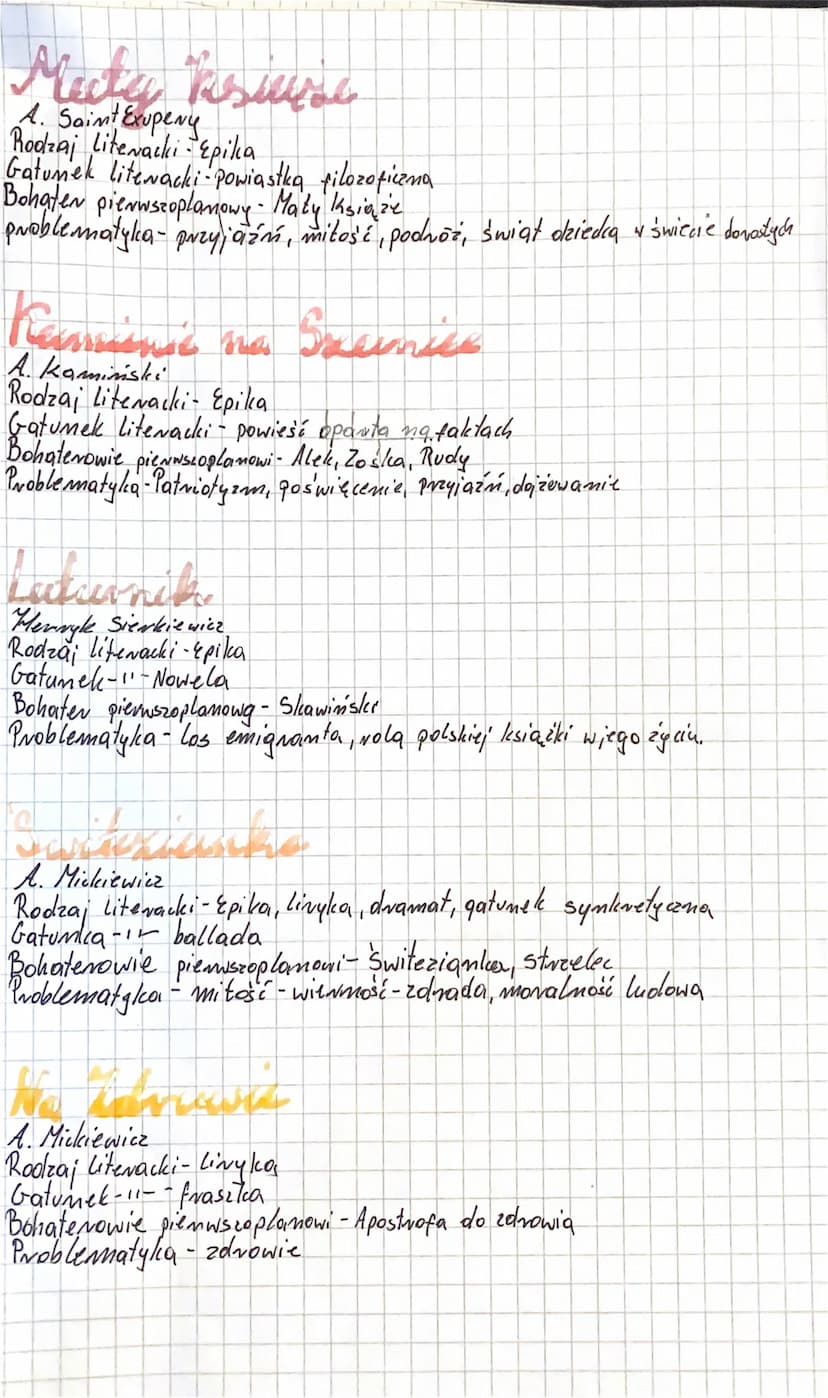 Mały Książe
A. Saint Exupery
Rodzaj literacki - Epika
Gatunek literacki - powiastka filozoficzna
Bohater pierwszoplanowy - Mały Książe
problematyka - przyjaźń, miłość, podróż, świat dziecka w świecie dorosłych
Kamienie na Szaniec
A. Kamiński
Rodzaj literacki - Epika
Gatunek literacki - powieść oparta na faktach
Bohaterowie pierwszoplanowi - Alek, Zośka, Rudy
Problematyka - Patriotyzm, poświęcenie, przyjaźń, dojżewanie
Latarnik
Henryk Sienkiewicz
Rodzaj literacki - Epika
Gatunek -11- Nowela
Bohater pierwszoplanowy - Skawiński
Problematyka - los emigranta, rola polskiej książki w jego życiu.
Świtezianka
A. Mickiewicz
Rodzaj literacki - Epika, liryka, dramat, gatunek synkretyczna
Gatunka -11- ballada
Bohaterowie pierwszoplanowi - Świtezianka, strzelec
Problematyka - miłość - wierność - zdrada, moralność ludowa
Na Zdrowie
A. Mickiewicz
Rodzaj literacki - liryka
Gatunek -11- - fraszka
Bohaterowie pierwszoplanowi - Apostrofa do zdrowia
Problematyka - zdrowie